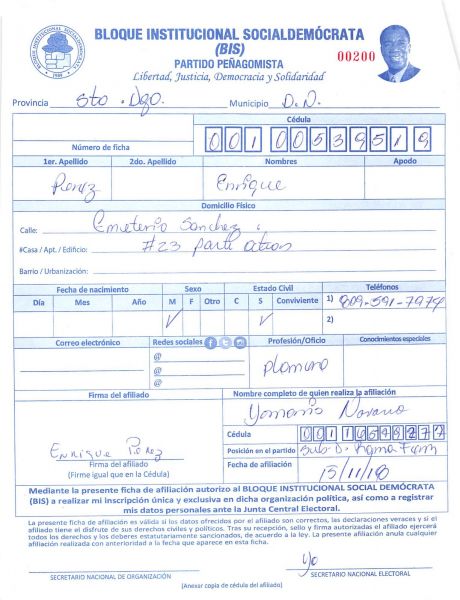 BLOQUE INSTITUCIONAL SOCIALDEMÓCRATA
(BIS)
PARTIDO PEÑAGOMISTA
Libertad, Justicia, Democracia y Solidaridad
00200
Provincia Sto. Dgo. Municipio D.N.
Cédula
Número de ficha 001 0053951 9
1er. Apellido 2do. Apellido Nombres Apodo
Perez Enrique
Domicilio Físico
Calle: Emeterio Sanchez
#Casa / Apt. / Edificio: #23 parte atras
Barrio / Urbanización:
Fecha de nacimiento Sexo Estado Civil Teléfonos
Día Mes Año M F Otro C S Conviviente 1) 809-591-7974
2)
Correo electrónico Redes sociales Profesión/Oficio Conocimientos especiales
@
@
@
Firma del afiliado Nombre completo de quien realiza la afiliación
Cédula
Enrique Perez
Firma del afiliado
(Firme igual que en la Cédula)
Posición en el partido
Fecha de afiliación 15/11/18
Mediante la presente ficha de afiliación autorizo al BLOQUE INSTITUCIONAL SOCIAL DEMÓCRATA
(BIS) a realizar mi inscripción única y exclusiva en dicha organización política, así como a registrar
mis datos personales ante la Junta Central Electoral.
La presente ficha de afiliación es válida si los datos ofrecidos por el afiliado son correctos, las declaraciones veraces y si el
afiliado tiene el disfrute de sus derechos civiles y políticos. Tras su recepción, sello y firma autorizados el afiliado ejercerá
todos los derechos y los deberes estatutariamente sancionados, de acuerdo a la ley. La presente afiliación anula cualquier
afiliación realizada con anterioridad a la fecha que aparece en esta ficha.
SECRETARIO NACIONAL DE ORGANIZACIÓN SECRETARIO NACIONAL ELECTORAL
(Anexar copia de cédula del afiliado)